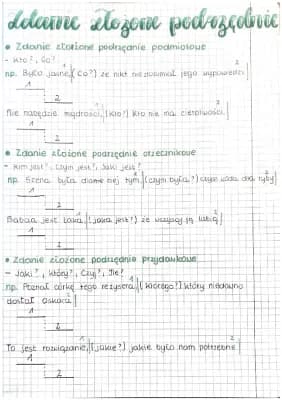 zdanie złożone podrzędnie
• Zdanie złożone podrzędnie podmiotowe
- Kto?, Co?
np. Było jasne, (Co?) że nikt nie rozumiał jego wypowiedzi
1
2
Nie nabędzie mądrości, (Kto?) Kto nie ma cierpliwości.
1
2
• Zdanie złożone podrzędnie orzecznikowe
- Kim jest?, Czym jest?, Jaki jest?
np. Scena była dla niej tym, (czym była?) czym woda dla ryby
1
2
Babcia jest taka, (jaka jest?) że wszyscy ją lubią
1
2
• Zdanie złożone podrzędnie przydawkowe
- Jaki?, który?, Czyj?, Ile?
np. Poznał córkę tego reżysera, (którego?) który niedawno
dostał oskara
1
2
To jest rozwiązanie, (jakie?) jakie było nam potrzebne
1
2